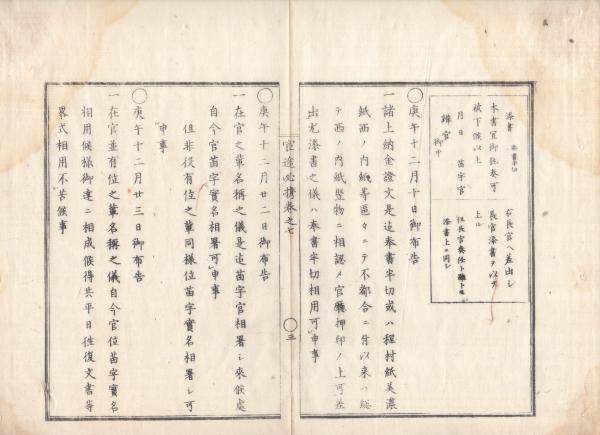 添書 奉書半切
本書宜御執奏可
被下候以上
月日 苗字官
辨官
御中
右長官ヘ差出シ
長官添書ヲ以テ
上ル
但長官奏任ト雖トモ
添書上ニ同シ
◯庚午十二月十日御布告
一諸上納金證文是迠奉書半切或ハ程村紙美濃
紙西ノ内紙等區々ニテ不都合ニ付以来ハ総
テ西ノ内紙竪物ニ相認メ官廳押印ノ上可差
出尤添書之儀ハ奉書半切相用可申事
官途必携卷之七
◯三
◯庚午十二月廿二日御布告
一在官之輩名稱之儀是迠苗字官相署シ來候處
自今官苗字實名相署可申事
但非役有位之輩同樣位苗字實名相署シ可
申事
◯庚午十二月廿三日御布告
一在官並有位之輩名稱之儀自今官位苗字實名
相用候樣御達ニ相成候得共平日徃復文書等
畧式相用不苦候事